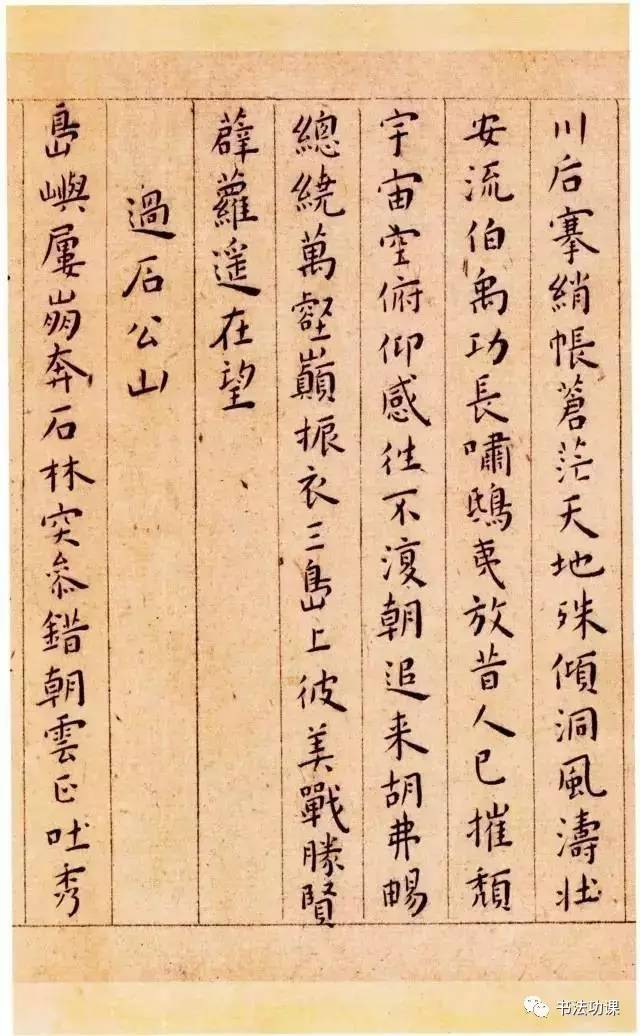 川后搴綃帳蒼茫天地殊傾洞風濤壯
安流伯禹功長嘯鴟夷放昔人已摧頹
宇宙空俯仰感往不復朝追来胡弗暢
總繞萬壑巔振衣三島上彼美戰勝賢
薜蘿遥在望
過石公山
島嶼屢崩奔石林突叅錯朝雲正吐秀
书法功课